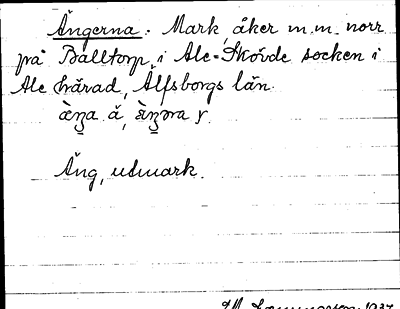 Ängerna. Mark åker m.m. norr
på Balltorp i Ale-Skövde socken i
Ale härad, Älfsborgs län.
Äng, utmark.
1937